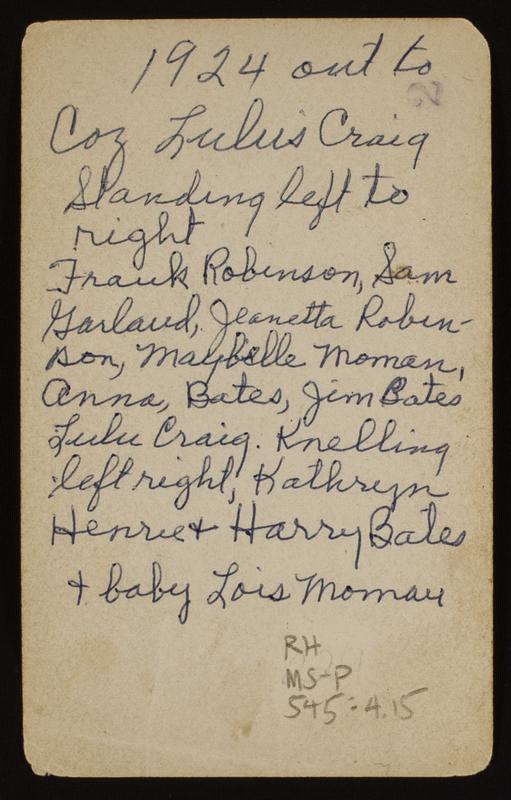 1924 out to
2
Coz Lulu's Craig
Standing left to
right
Frank Robinson, Sam
Garland, Jeanetta Robin-
son, Maybelle Moman,
Anna, Bates, Jim Bates
Lulu Craig. Knelling
left right, Kathryn
Henrie + Harry Bates
+ baby Lois Moman
RH
MS-P
545:4.15